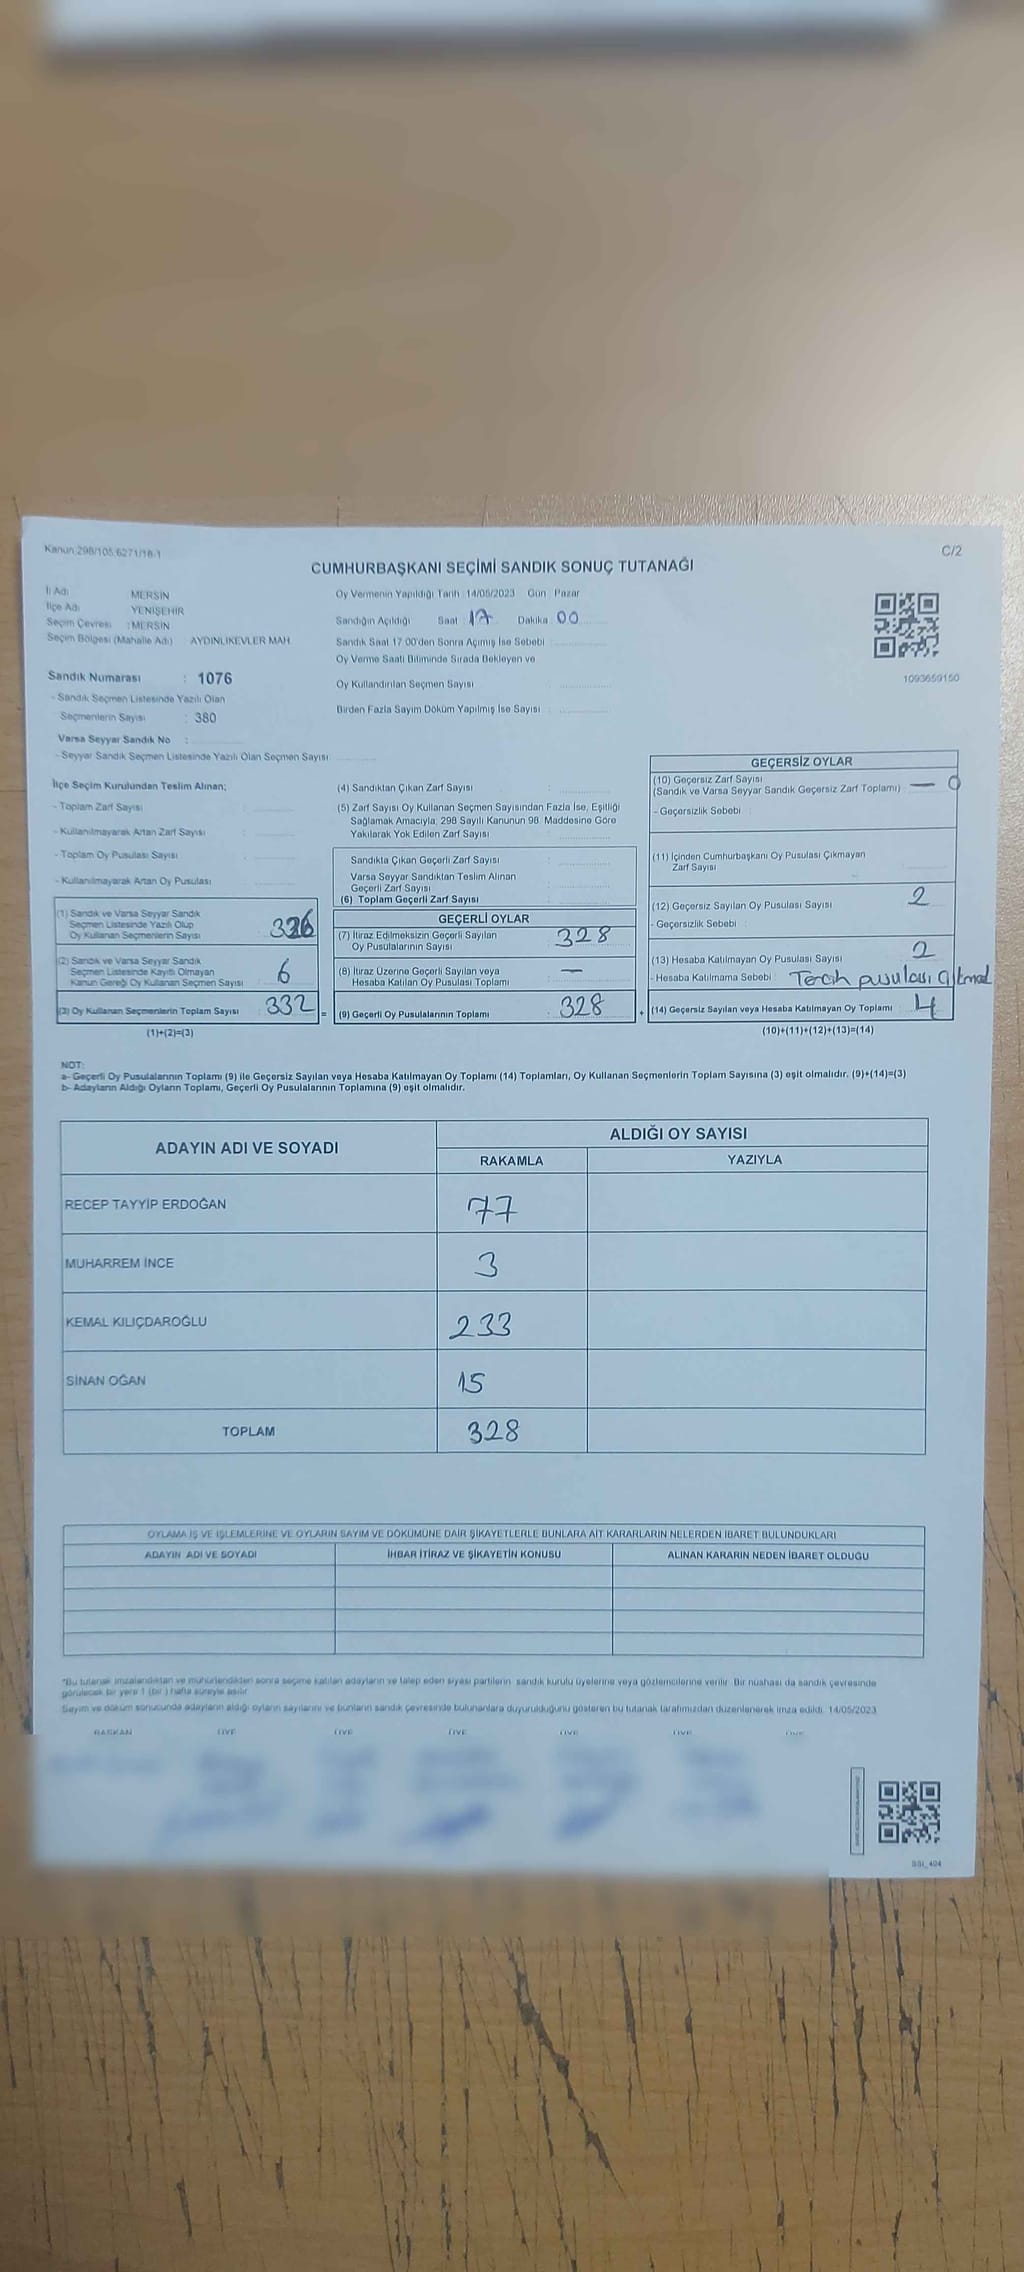 Kanun:298/105,6271/18/1
C/2
CUMHURBAŞKANI SEÇİMİ SANDIK SONUÇ TUTANAĞI
İl Adı : MERSİN
İlçe Adı : YENİŞEHİR
Seçim Çevresi : MERSİN
Seçim Bölgesi (Mahalle Adı) AYDINLIKEVLER MAH
Sandık Numarası : 1076
- Sandık Seçmen Listesinde Yazılı Olan
Seçmenlerin Sayısı : 380
Varsa Seyyar Sandık No :
- Seyyar Sandık Seçmen Listesinde Yazılı Olan Seçmen Sayısı
Oy Vermenin Yapıldığı Tarih :14/05/2023 Gün : Pazar
Sandığın Açıldığı Saat 17 Dakika 00
Sandık Saat 17:00'den Sonra Açımış İse Sebebi :
Oy Verme Saati Bitiminde Sırada Bekleyen ve
Oy Kullandırılan Seçmen Sayısı :
Birden Fazla Sayım Döküm Yapılmış İse Sayısı :
1093659150
İlçe Seçim Kurulundan Teslim Alınan;
- Toplam Zarf Sayısı :
- Kullanılmayarak Artan Zarf Sayısı :
- Toplam Oy Pusulası Sayısı :
- Kullanılmayarak Artan Oy Pusulası :
(1) Sandık ve Varsa Seyyar Sandık
Seçmen Listesinde Yazılı Olup
Oy Kullanan Seçmenlerin Sayısı : 326
(2) Sandık ve Varsa Seyyar Sandık
Seçmen Listesinde Kayıtlı Olmayan
Kanun Gereği Oy Kullanan Seçmen Sayısı : 6
(3) Oy Kullanan Seçmenlerin Toplam Sayısı : 332
(1)+(2)=(3)
(4) Sandıktan Çıkan Zarf Sayısı :
(5) Zarf Sayısı Oy Kullanan Seçmen Sayısından Fazla İse, Eşitliği
Sağlamak Amacıyla, 298 Sayılı Kanunun 98. Maddesine Göre
Yakılarak Yok Edilen Zarf Sayısı :
Sandıkla Çıkan Geçerli Zarf Sayısı :
Varsa Seyyar Sandıktan Teslim Alınan
Geçerli Zarf Sayısı :
(6) Toplam Geçerli Zarf Sayısı :
GEÇERLİ OYLAR
(7) İtiraz Edilmeksizin Geçerli Sayılan
Oy Pusulalarının Sayısı : 328
(8) İtiraz Üzerine Geçerli Sayılan veya
Hesaba Katılan Oy Pusulası Toplamı : —
= (9) Geçerli Oy Pusulalarının Toplamı : 328
GEÇERSİZ OYLAR
(10) Geçersiz Zarf Sayısı
(Sandık ve Varsa Seyyar Sandık Geçersiz Zarf Toplamı) — 0
- Geçersizlik Sebebi :
(11) İçinden Cumhurbaşkanı Oy Pusulası Çıkmayan
Zarf Sayısı
(12) Geçersiz Sayılan Oy Pusulası Sayısı : 2
- Geçersizlik Sebebi :
(13) Hesaba Katılmayan Oy Pusulası Sayısı : 2
- Hesaba Katılmama Sebebi : Tercih pusulası
+ (14) Geçersiz Sayılan veya Hesaba Katılmayan Oy Toplamı : 4
(10)+(11)+(12)+(13)=(14)
NOT:
a- Geçerli Oy Pusulalarının Toplamı (9) ile Geçersiz Sayılan veya Hesaba Katılmayan Oy Toplamı (14) Toplamları, Oy Kullanan Seçmenlerin Toplam Sayısına (3) eşit olmalıdır. (9)+(14)=(3)
b- Adayların Aldığı Oyların Toplamı, Geçerli Oy Pusulalarının Toplamına (9) eşit olmalıdır.
ADAYIN ADI VE SOYADI ALDIĞI OY SAYISI
RAKAMLA YAZIYLA
RECEP TAYYİP ERDOĞAN 77
MUHARREM İNCE 3
KEMAL KILIÇDAROĞLU 233
SİNAN OĞAN 15
TOPLAM 328
OYLAMA İŞ VE İŞLEMLERİNE VE OYLARIN SAYIM VE DÖKÜMÜNE DAİR ŞİKAYETLERLE BUNLARA AİT KARARLARIN NELERDEN İBARET BULUNDUKLARI
ADAYIN ADI VE SOYADI İHBAR İTİRAZ VE ŞİKAYETİN KONUSU ALINAN KARARIN NEDEN İBARET OLDUĞU
*Bu tutanak imzalandıktan ve mühürlendikten sonra seçime katılan adayların ve talep eden siyasi partilerin sandık kurulu üyelerine veya gözlemcilerine verilir. Bir nüshası da sandık çevresinde
görülecek bir yere 1 (bir) hafta süreyle asılır.
Sayım ve döküm sonucunda adayların aldığı oyların sayılarını ve bunların sandık çevresinde bulunanlara duyurulduğunu gösteren bu tutanak tarafımızdan düzenlenerek imza edildi. 14/05/2023
BAŞKAN ÜYE ÜYE ÜYE ÜYE ÜYE ÜYE